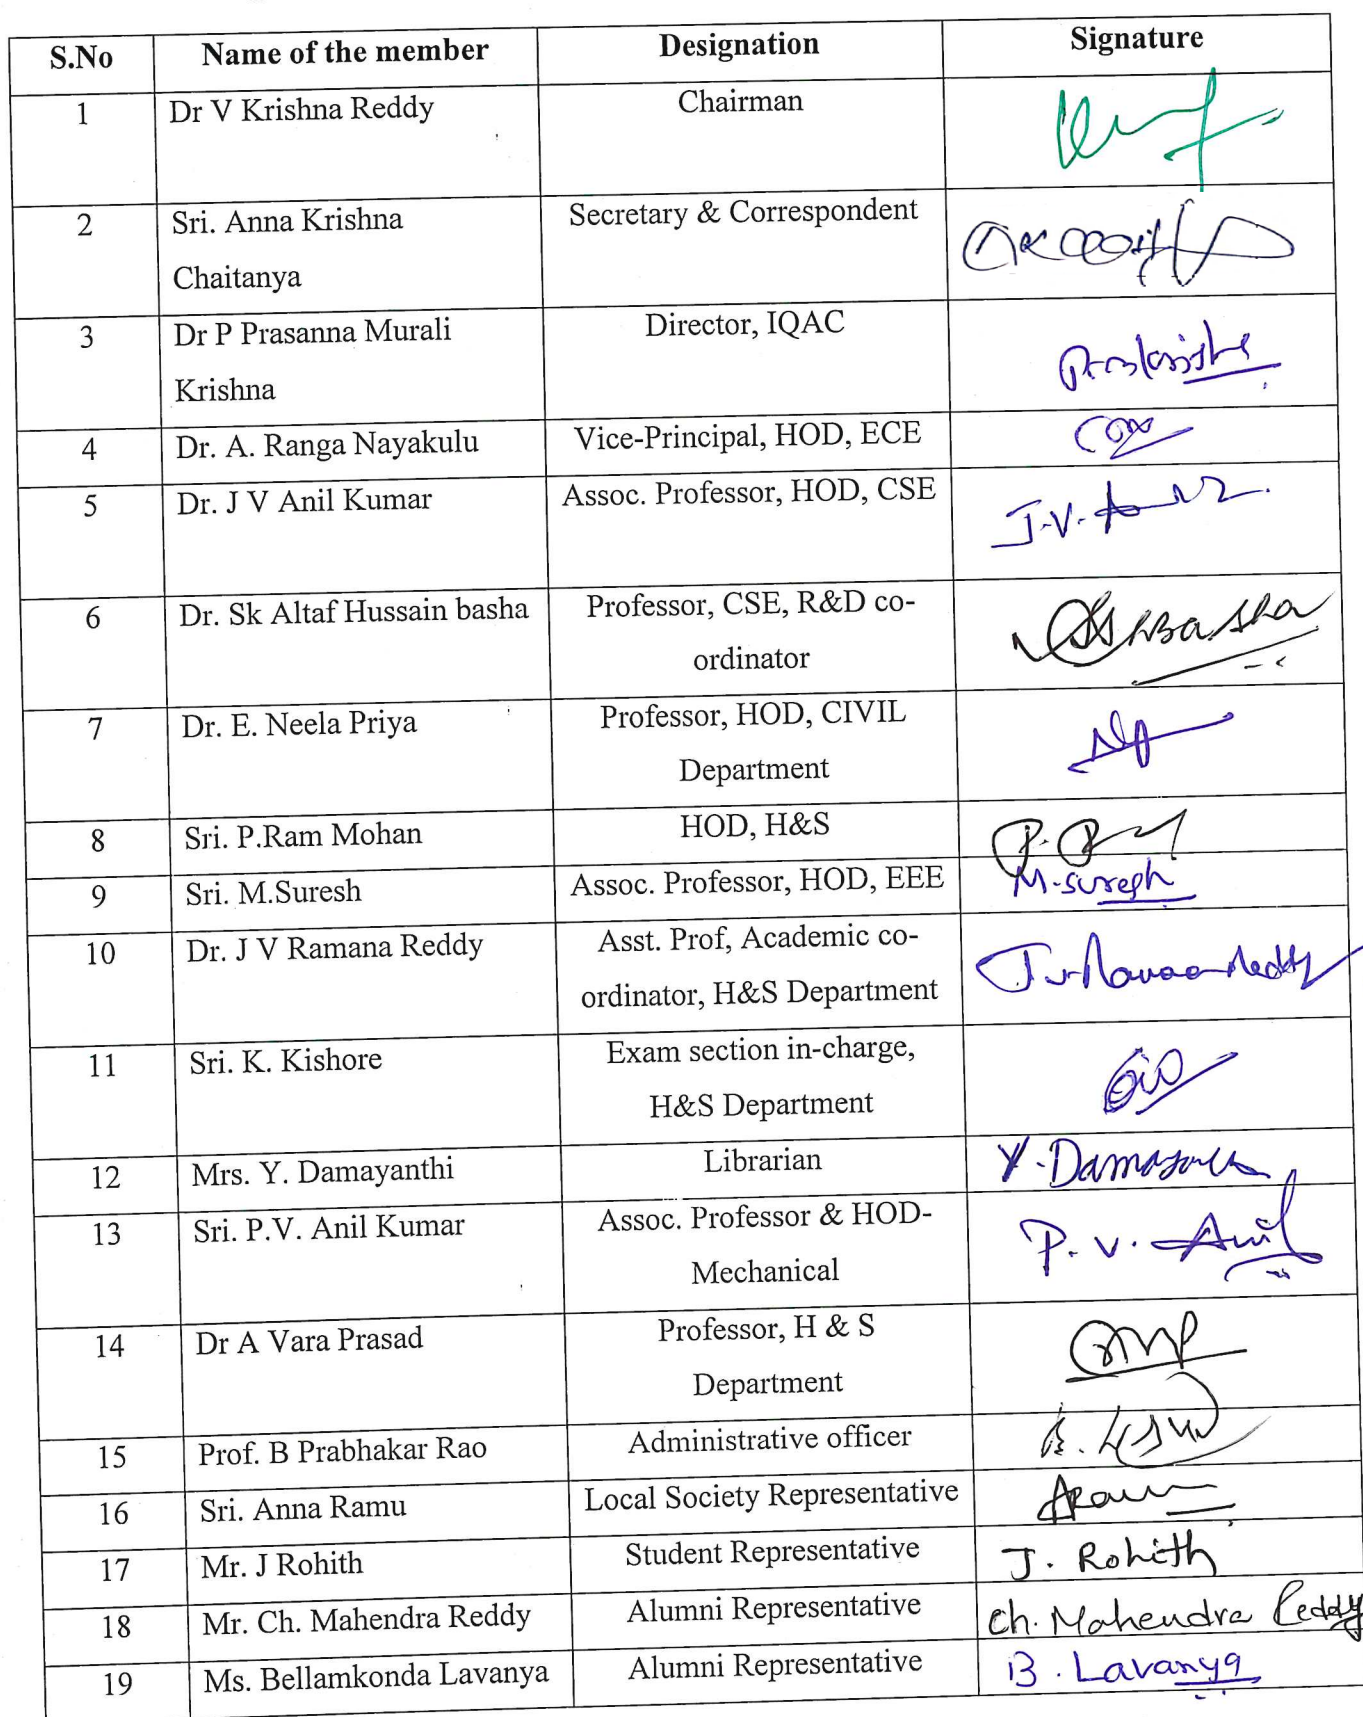 S.No Name of the member Designation Signature
1 Dr V Krishna Reddy Chairman
2 Sri. Anna Krishna Secretary & Correspondent
Chaitanya
3 Dr P Prasanna Murali Director, IQAC
Krishna
4 Dr. A. Ranga Nayakulu Vice-Principal, HOD, ECE
5 Dr. J V Anil Kumar Assoc. Professor, HOD, CSE J.V.
6 Dr. Sk Altaf Hussain basha Professor, CSE, R&D co-
ordinator
7 Dr. E. Neela Priya Professor, HOD, CIVIL
Department
8 Sri. P.Ram Mohan HOD, H&S P.
9 Sri. M.Suresh Assoc. Professor, HOD, EEE M.suresh
10 Dr. J V Ramana Reddy Asst. Prof, Academic co-
ordinator, H&S Department
11 Sri. K. Kishore Exam section in-charge,
H&S Department
12 Mrs. Y. Damayanthi Librarian Y.
13 Sri. P.V. Anil Kumar Assoc. Professor & HOD- P. V. Anil
Mechanical
14 Dr A Vara Prasad Professor, H & S
Department
15 Prof. B Prabhakar Rao Administrative officer
16 Sri. Anna Ramu Local Society Representative
17 Mr. J Rohith Student Representative J. Rohith
18 Mr. Ch. Mahendra Reddy Alumni Representative Ch. Mahendra Reddy
19 Ms. Bellamkonda Lavanya Alumni Representative B. Lavanya